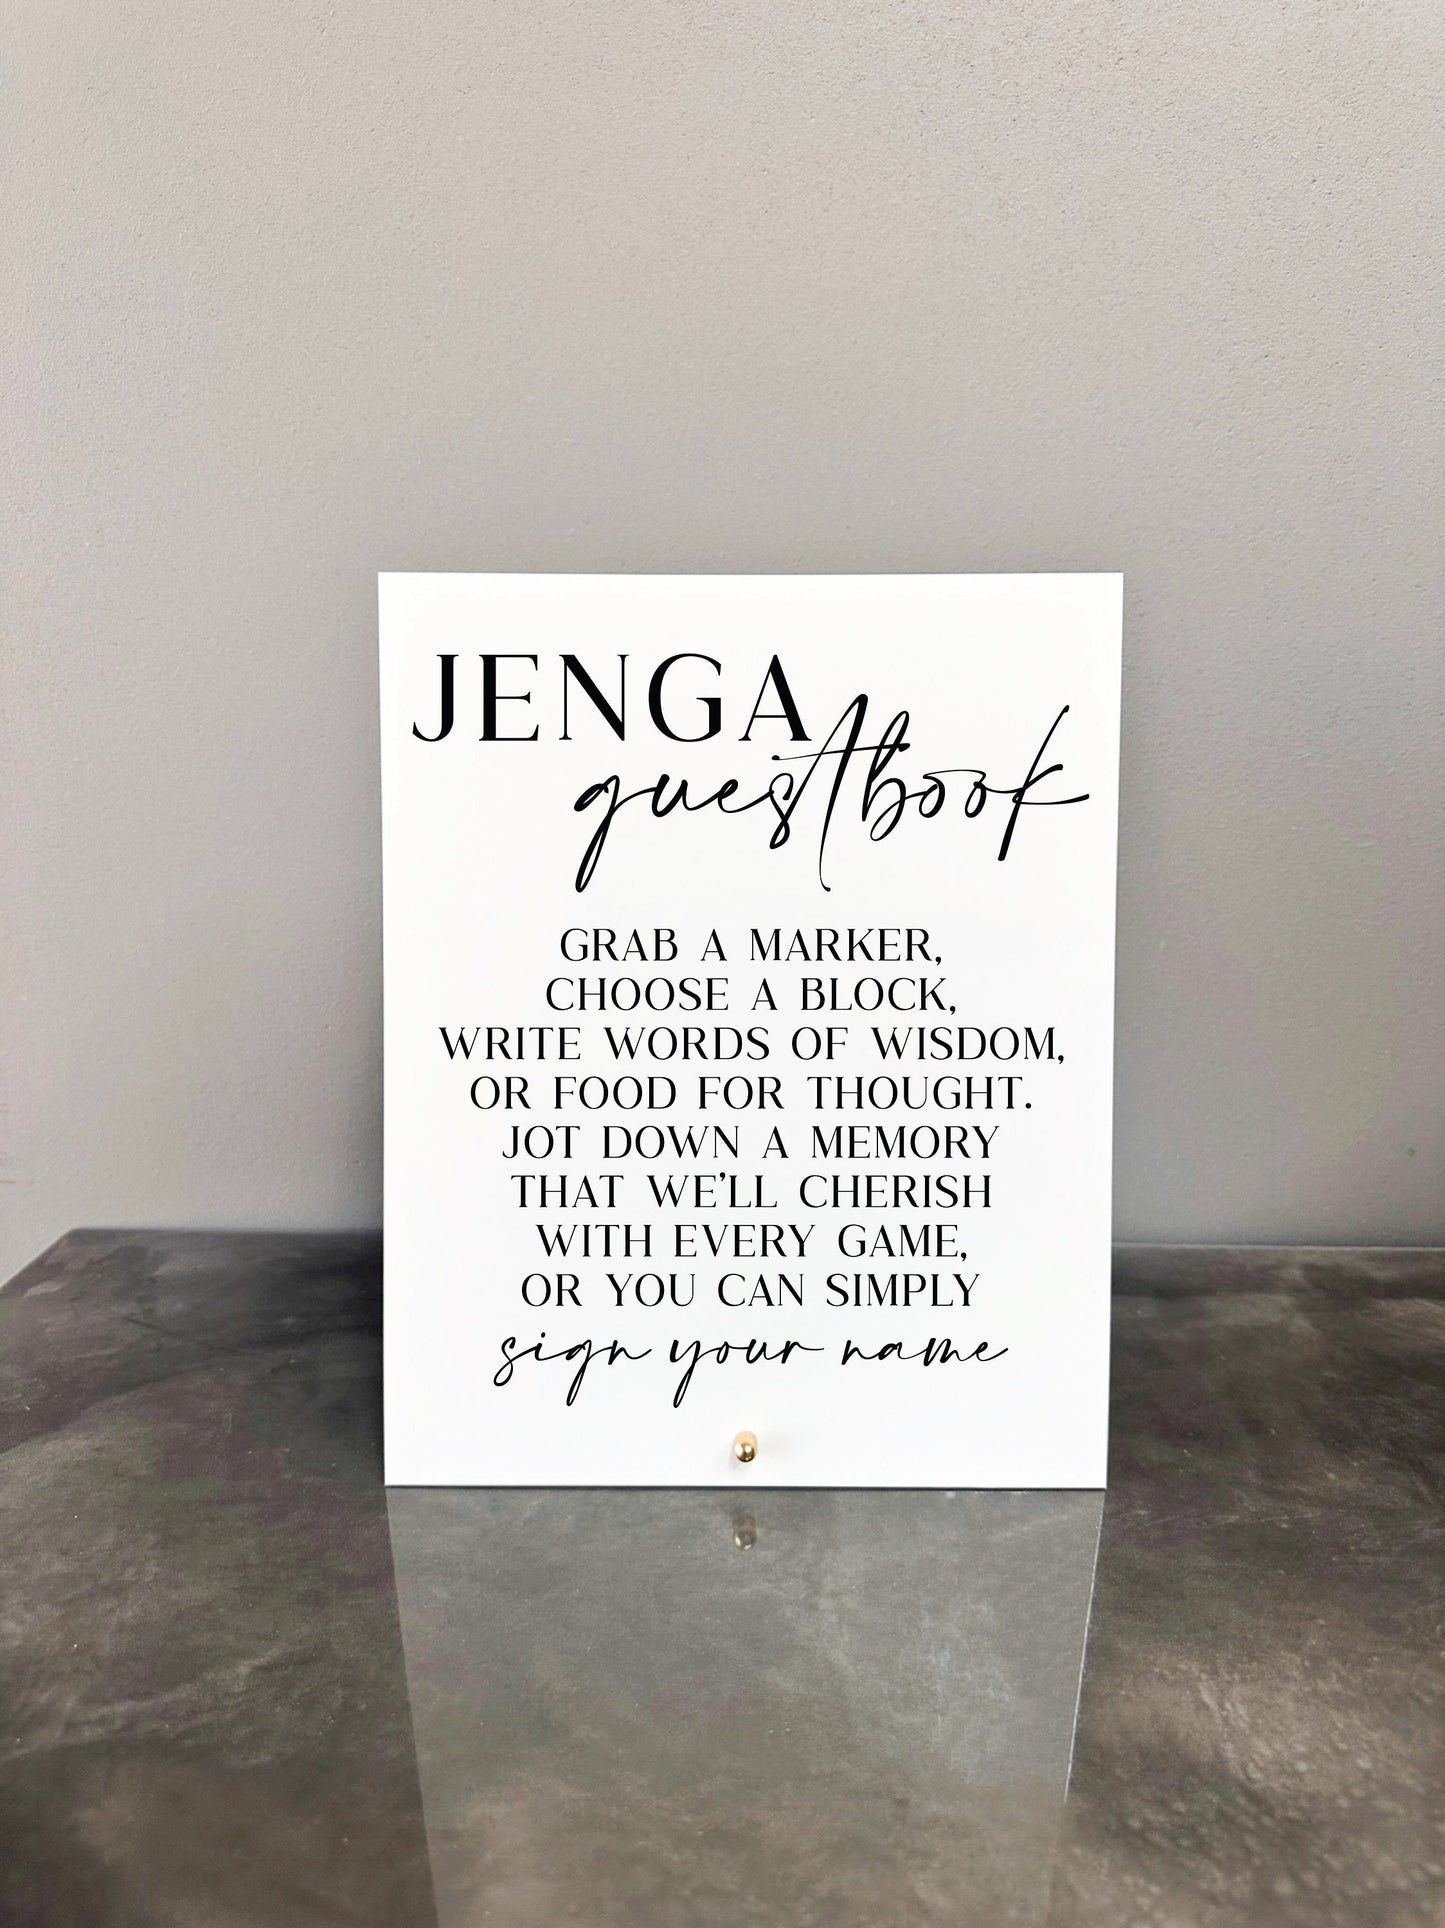 JENGA
guestbook
GRAB A MARKER,
CHOOSE A BLOCK,
WRITE WORDS OF WISDOM,
OR FOOD FOR THOUGHT.
JOT DOWN A MEMORY
THAT WE'LL CHERISH
WITH EVERY GAME,
OR YOU CAN SIMPLY
sign your name